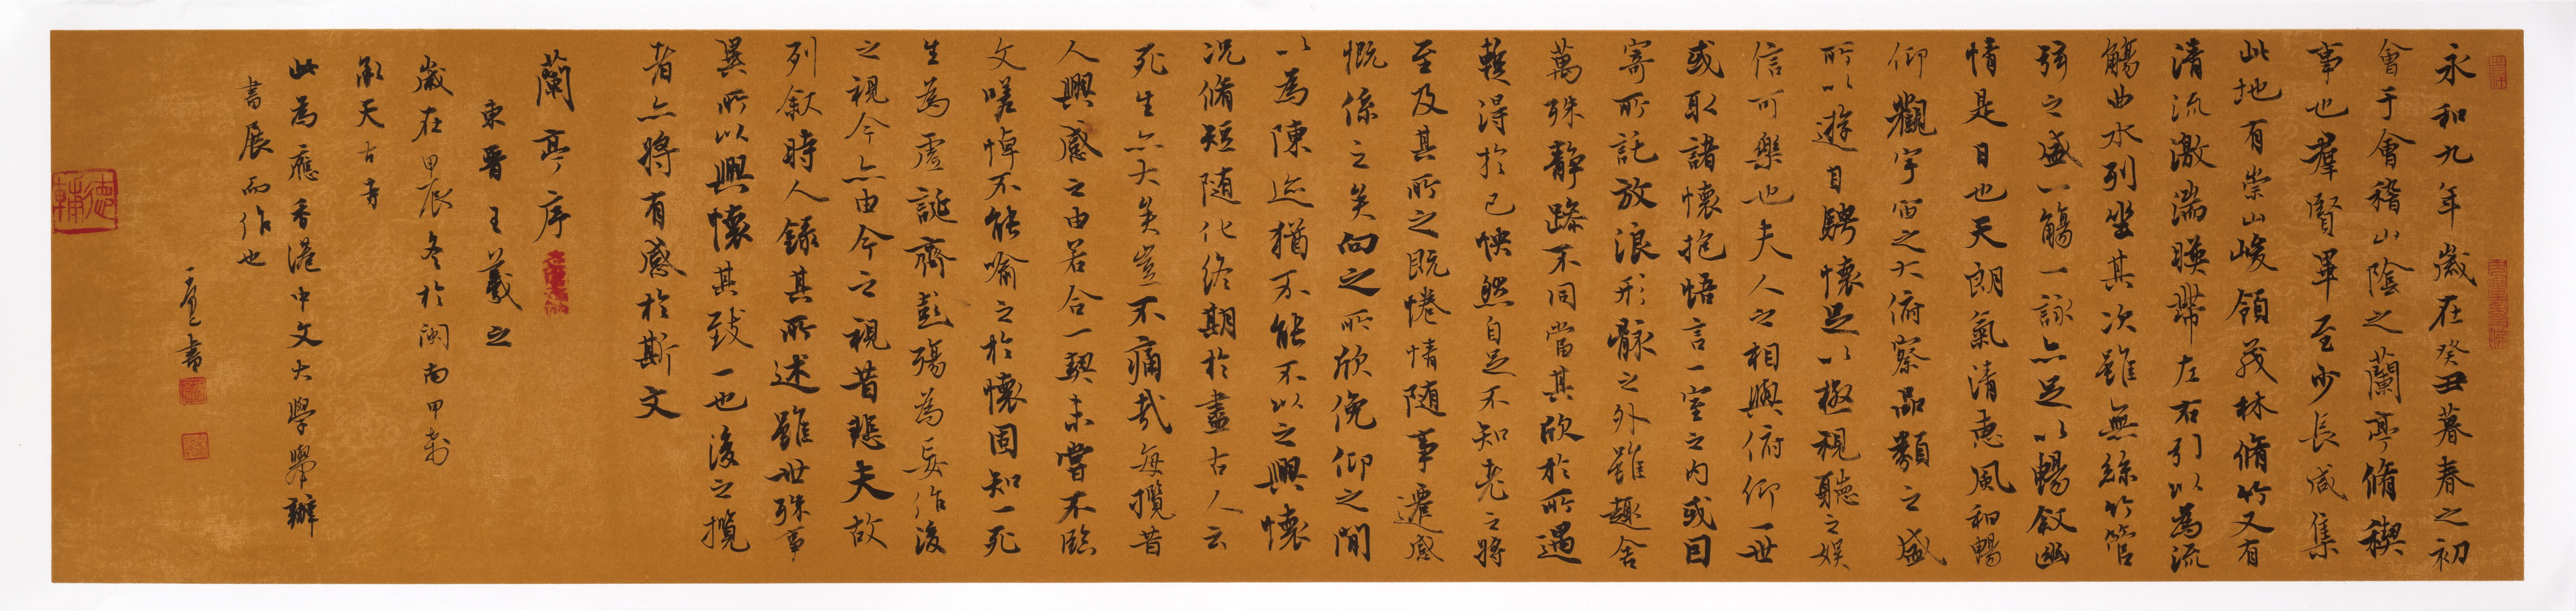 永和九年歲在癸丑暮春之初
會于會稽山陰之蘭亭脩稧
事也羣賢畢至少長咸集
此地有崇山峻領茂林脩竹又有
清流激湍暎帶左右引以為流
觴曲水列坐其次雖無絲竹管
弦之盛一觴一詠亦足以暢敘幽
情是日也天朗氣清惠風和暢
仰觀宇宙之大俯察品類之盛
所以遊目騁懷足以極視聽之娛
信可樂也夫人之相與俯仰一世
或取諸懷抱悟言一室之內或因
寄所託放浪形骸之外雖趣舍
萬殊靜躁不同當其欣於所遇
蹔得於己怏然自足不知老之將
至及其所之既惓情隨事遷感
慨係之矣向之所欣俛仰之間
以為陳迹猶不能不以之興懷
況脩短隨化終期於盡古人云
死生亦大矣豈不痛哉每攬昔
人興感之由若合一契未嘗不臨
文嗟悼不能喻之於懷固知一死
生為虛誕齊彭殤為妄作後
之視今亦由今之視昔悲夫故
列敘時人錄其所述雖世殊事
異所以興懷其致一也後之攬
者亦將有感於斯文
蘭亭序
東晉王羲之
歲在甲辰冬於閩南
承天古寺
此為應香港中文大學舉辦
書展而作也
書